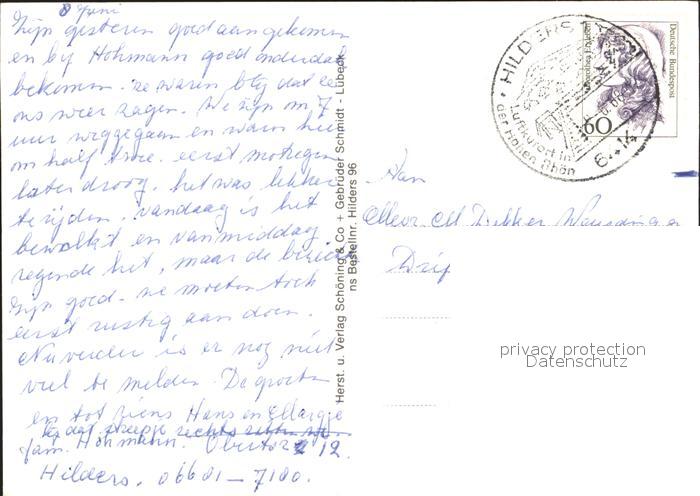 8 Juni
Zijn gisteren goed aangekomen
en bij Hohmann goed onderdak
bekomen. ze waren blij dat ze
ons weer zagen. We zijn om 7
uur weggegaan en waren hier
om half twee. eerst motregen
later droog. het was lekker
te rijden. vandaag is het
bewolkt en vanmiddag
regende het, maar de
zijn goed. we moeten toch
eerst rustig aan doen.
Nu verder is er nog niet
veel te melden. De groeten
en tot ziens Hans en
bij dat streepje rechts
fam. Hohmann. Obertor 12.
Hilders. 06681-7180.
Herst. u. Verlag Schöning & Co + Gebrüder Schmidt - Lübeck
ns Bestellnr. Hilders 96
HILDERS
Luftkurort in
der Hohen Rhön
6414
Deutsche Bundespost
60
Aan
Mevr. M. Dekker
privacy protection
Datenschutz